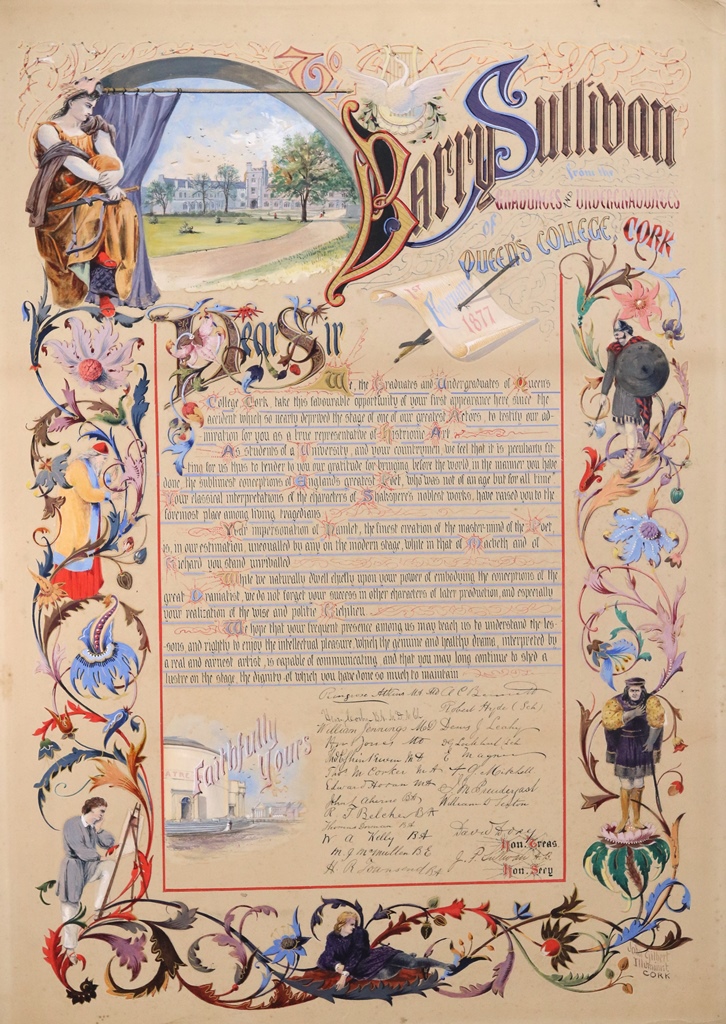 To
Barry Sullivan
from the
Graduates and Undergraduates
of
Queen's College, Cork
1st
1877
Dear Sir
We, the Graduates and Undergraduates of Queens
College Cork, take this favourable opportunity of your first appearance here since the
accident which so nearly deprived the stage of one of our greatest Actors, to testify our ad-
miration for you as a true representative of Histrionic Art
As students of a University, and your countrymen, we feel that it is peculiarly fit
ting for us thus to tender to you our gratitude for bringing before the world in the manner you have
done, the sublimest conceptions of Englands greatest Poet, who was not of an age but for all time
Your classical interpretations of the characters of Shakspere's noblest works, have raised you to the
foremost place among living tragedians
Your impersonation of Hamlet, the finest creation of the master-mind of the Poet,
is, in our estimation, unequalled by any on the modern stage, while in that of Macbeth and of
Richard you stand unrivalled
While we naturally dwell chiefly upon your power of embodying the conceptions of the
great Dramatist, we do not forget your success in other characters of later production, and especially
your realization of the wise and politic Richelieu
We hope that your frequent presence among us may teach us to understand the les-
sons and rightly to enjoy the intellectual pleasure which the genuine and healthy drama, interpreted by
a real and earnest artist, is capable of communicating, and that you may long continue to shed a
lustre on the stage, the dignity of which you have done so much to maintain
Faithfully
Yours
Ringrose Atkins MA MD A C
Robert Hyde (Sch)
William Jennings MD Denis J Leahy
E Magner
MA
Edward Horan MA J. M. Prendergast
John J. Aherne BA William O Sexton
R J Belcher BA
Thomas BA
W A Kelly BA David Dorcy
Hon. Treas
M J McMullen BE J. P. Sullivan A B
H R Townsend BA Hon. Secy
Gilbert
Illuminant
CORK